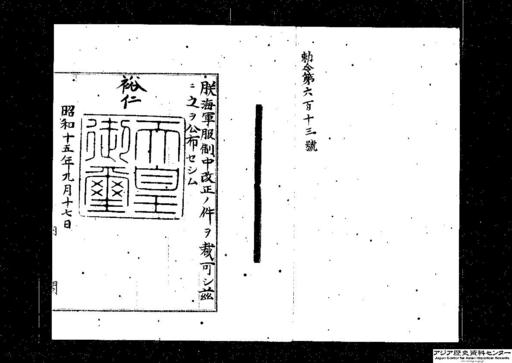 勅令第六百十三號
朕海軍服制中改正ノ件ヲ裁可シ茲
ニ之ヲ公布セシム
裕仁
天皇御璽
昭和十五年九月十七日
内閣
アジア歴史資料センター
Japan Center for Asian Historical Records